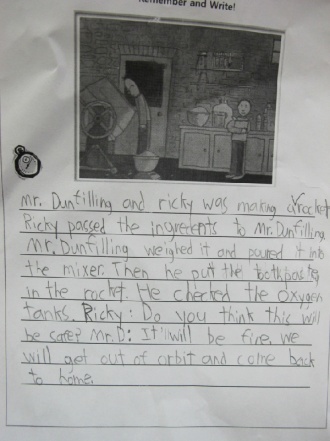 Remember and Write!
Mr. Dunfilling and ricky was making a rocket
Ricky passed the ingreients to Mr. Dunfilling
Mr. Dunfilling weighed it and poured it into
the mixer. Then he put the toothpaste
in the rocket. He checked the oxygen
tanks. Ricky: Do you think this will
be safe? Mr.D: It'll will be fine, we
will get out of orbit and come back
to home.